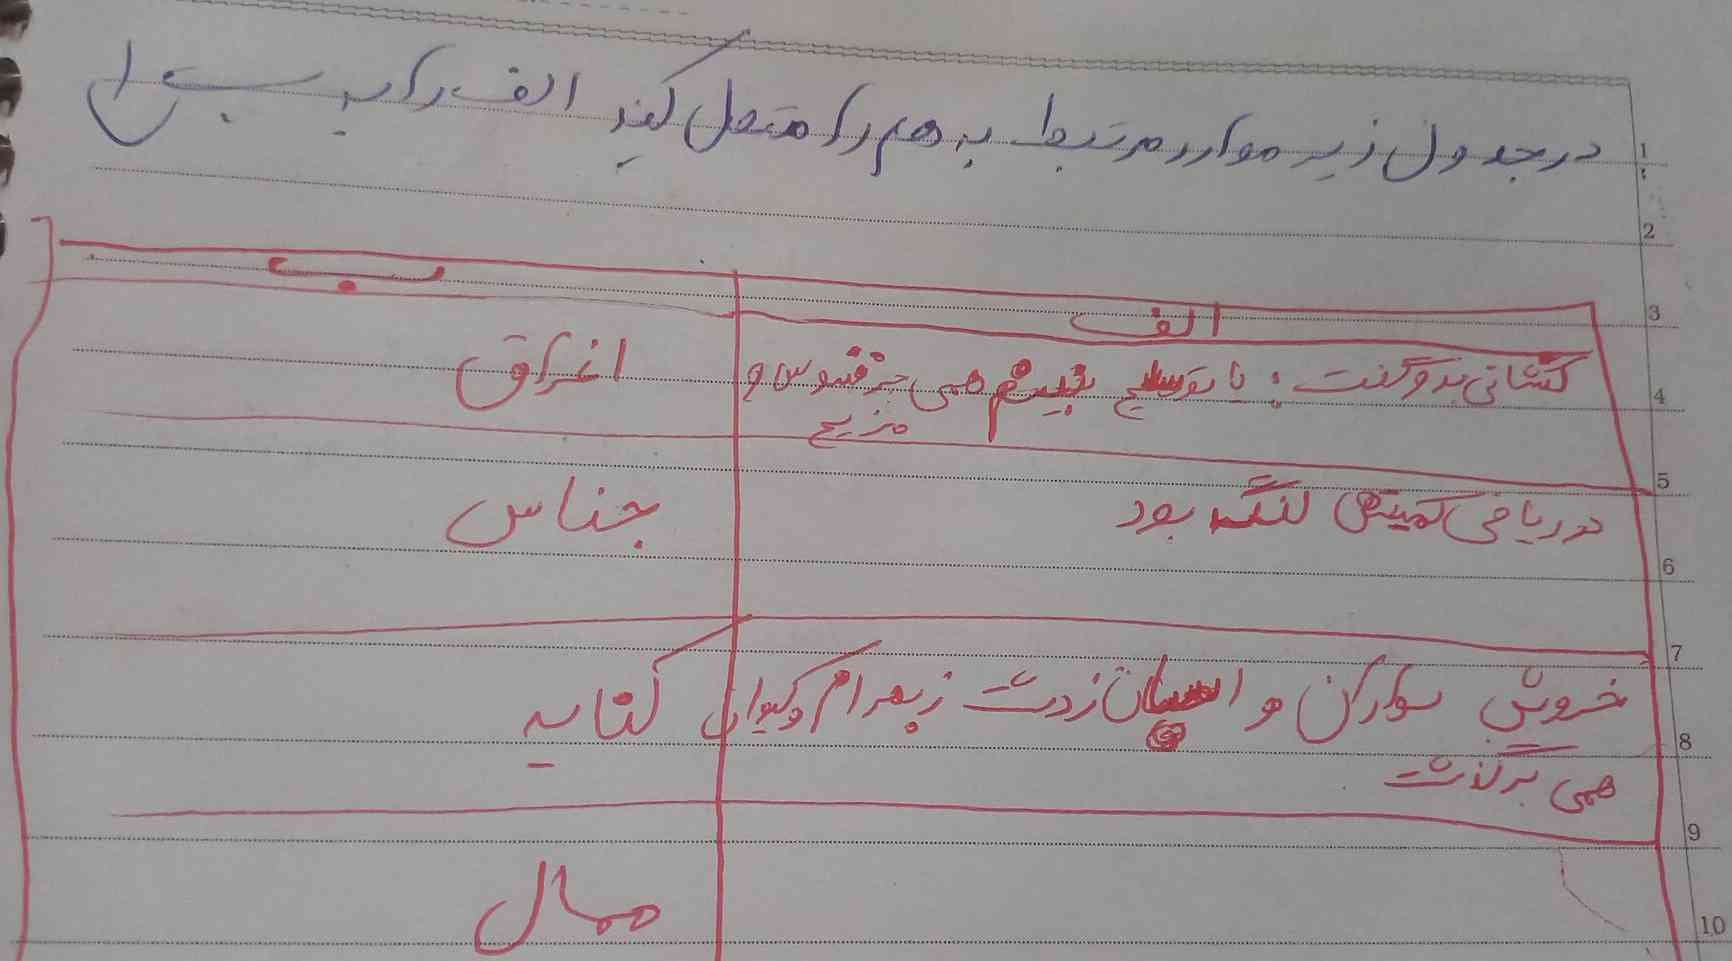 در جدول زیر موارد مرتبط به هم را متصل کنید الف را به ب ا
1
2
3
الف
ب
4
کشانی بدو گفت: با تو سلیح نبینم همی جز فسوس و
مزیح
اغراق
5
در ریاضی کمیتش لنگ بود
جناس
6
7
خروش سواران و اسپان ز دشت ز بهرام و کیوان
همی برگذشت
کنایه
8
9
ممال
10